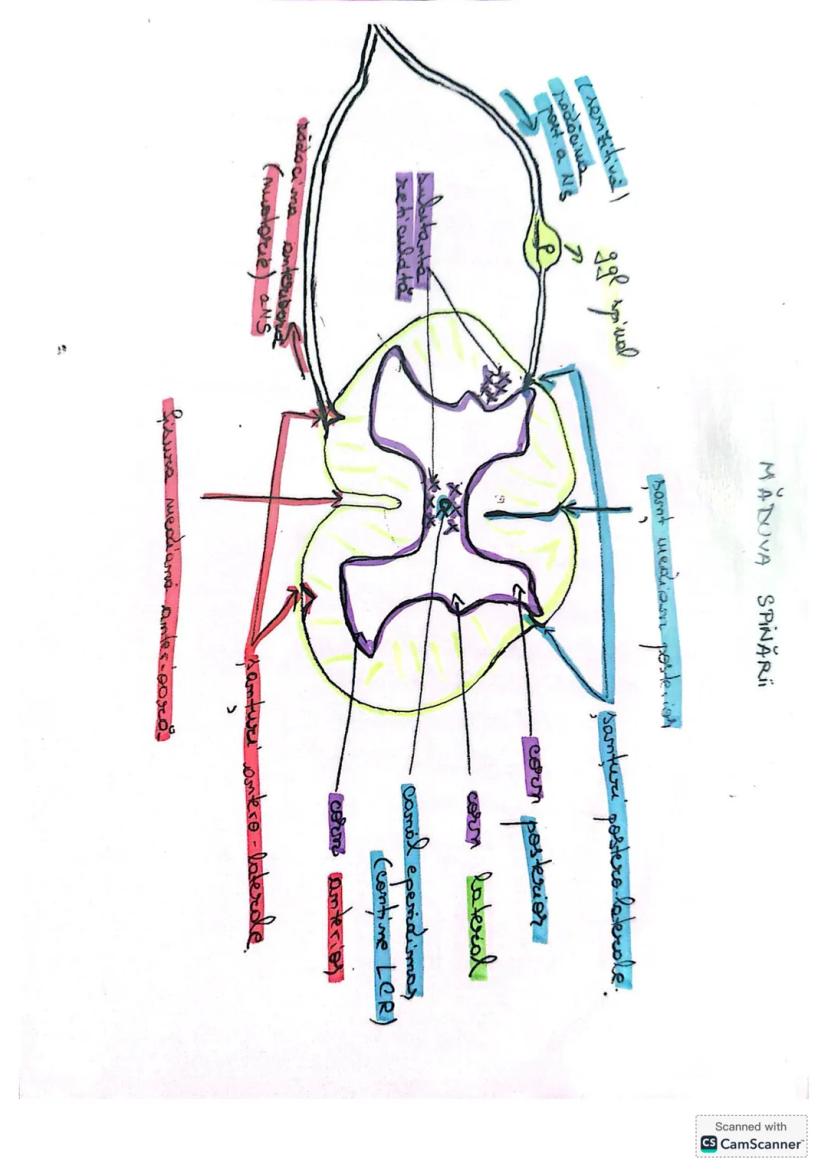 MĂDUVA SPINĂRII
șanț median posterior
(senzitivă)
rădăcina
post. a NS
ggl spinal
substanța
reticulată
rădăcina anterioară
(motorie) a NS
fisura mediană anterioară
șanțuri antero-laterale
corn anterior
canal ependimar
(conține LCR)
corn lateral
corn posterior
șanțuri postero-laterale.
Scanned with
CS CamScanner